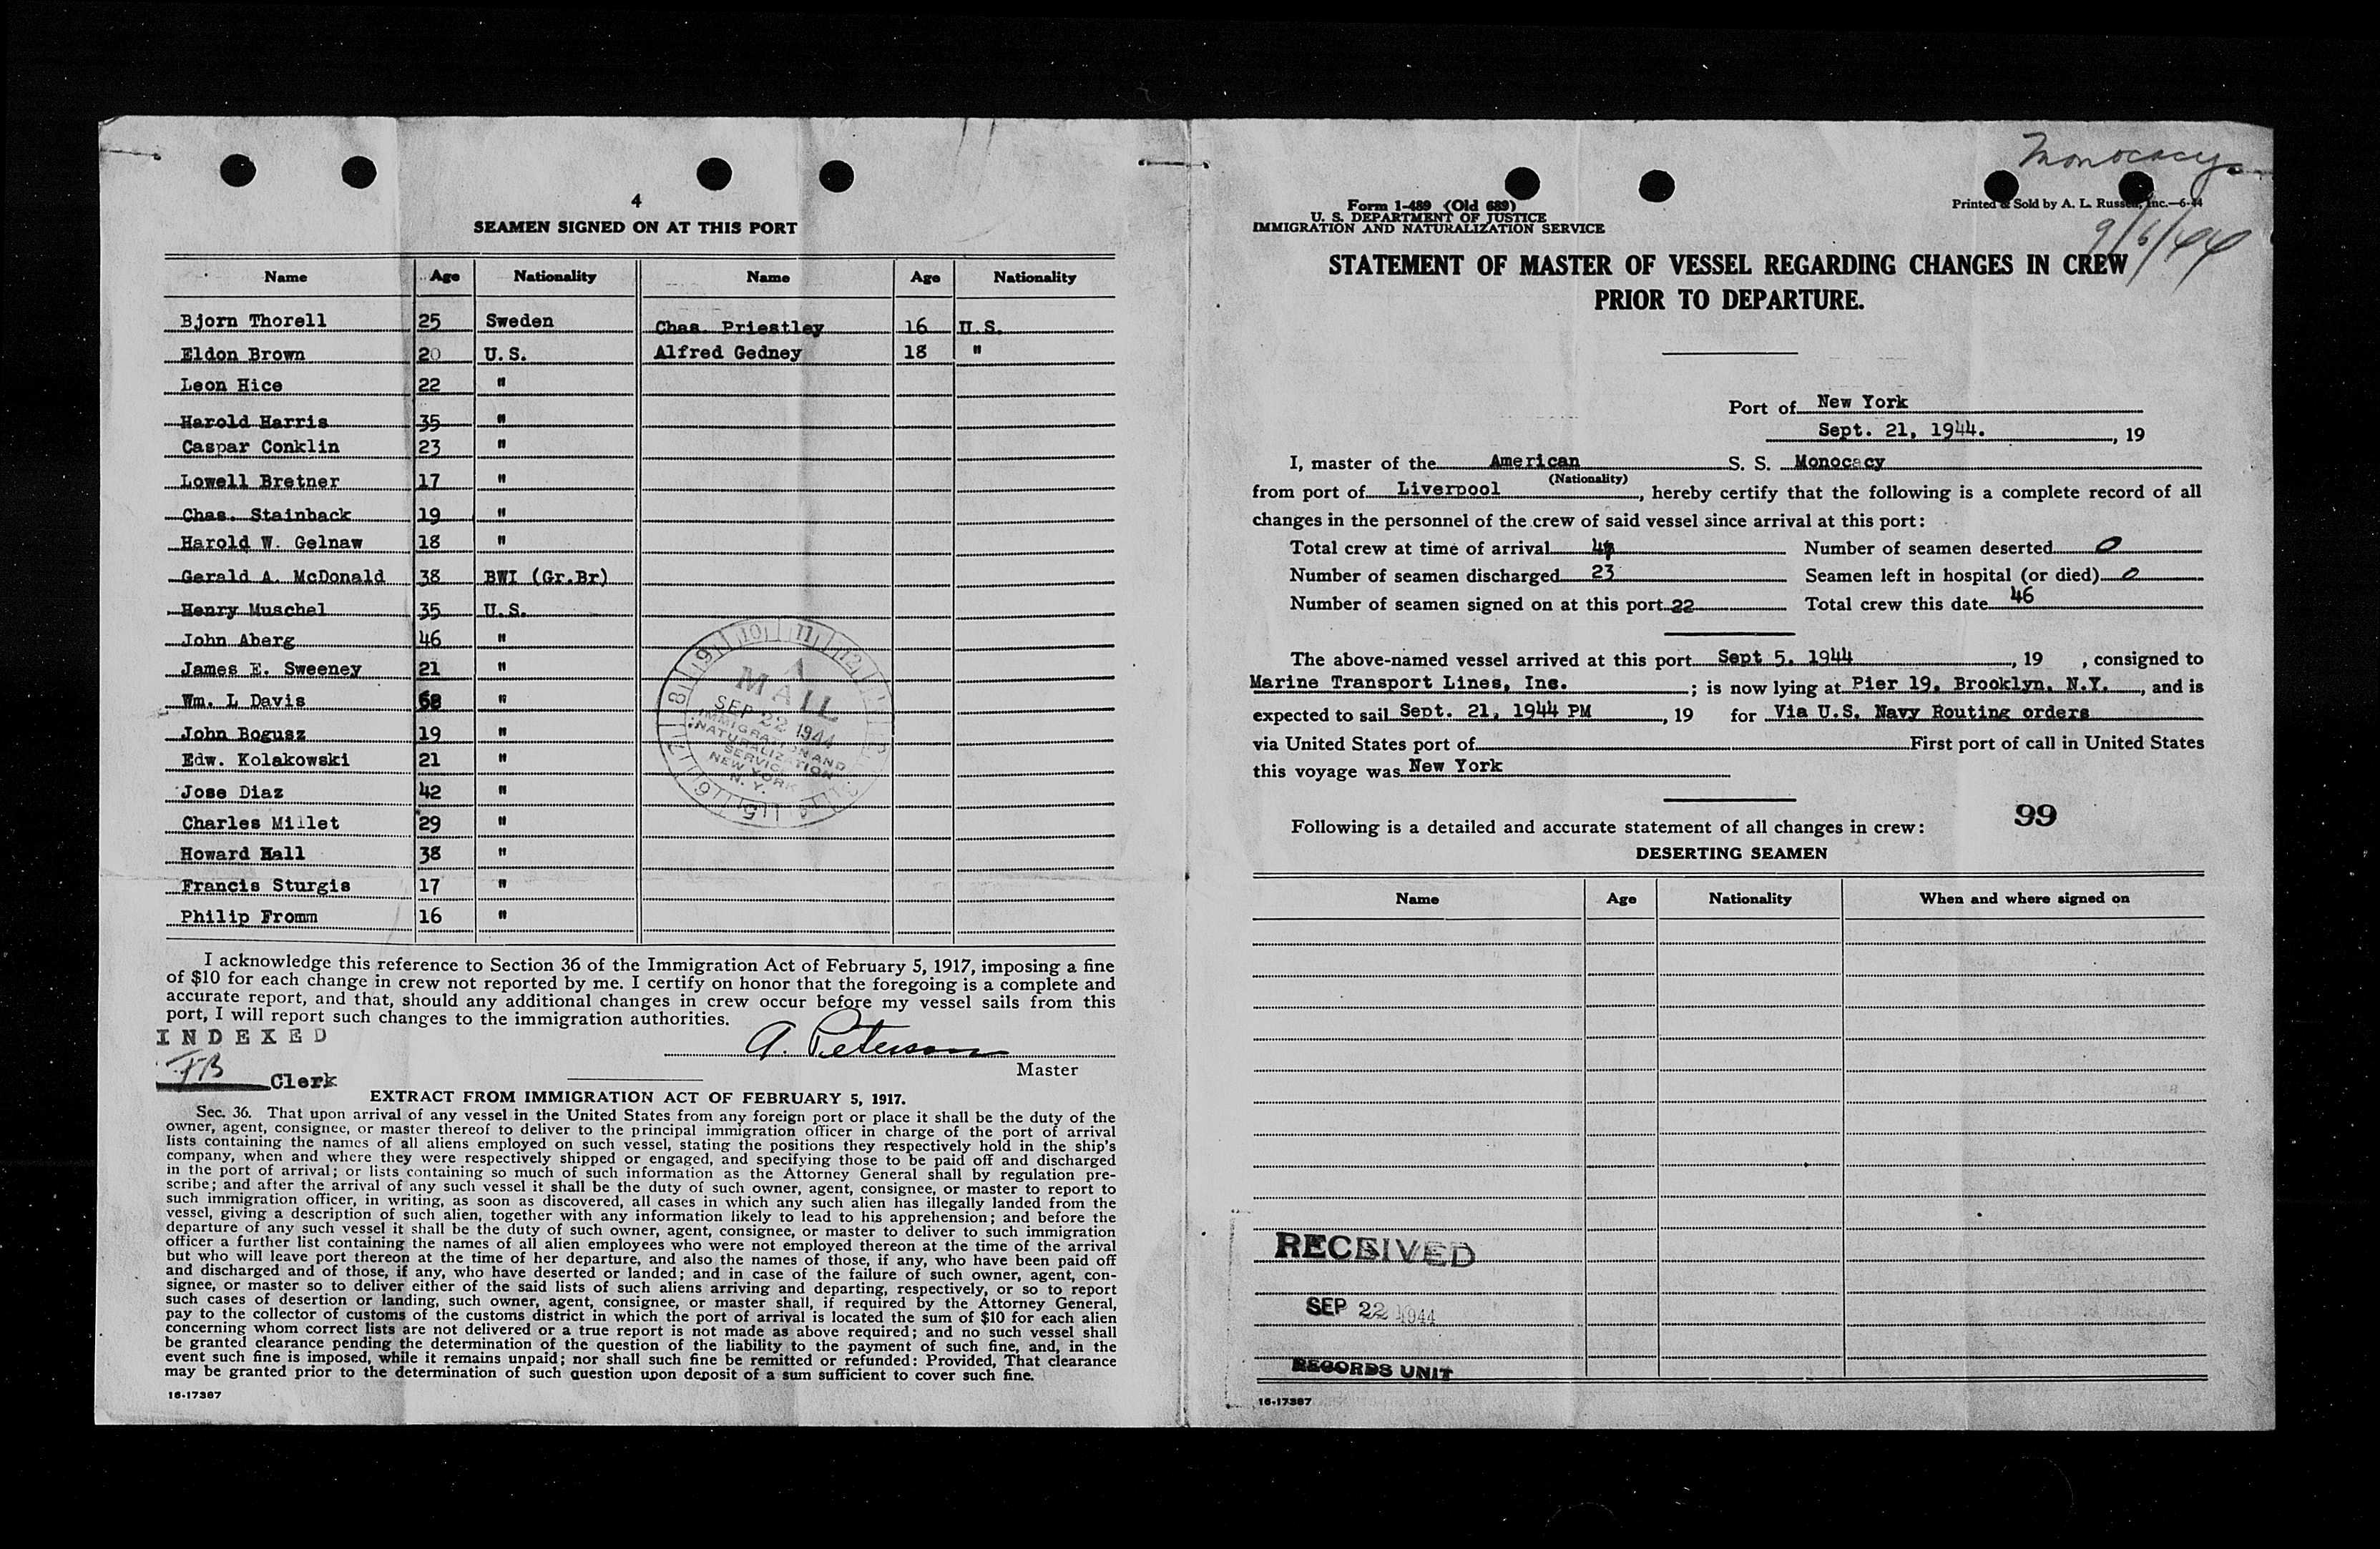 4
SEAMEN SIGNED ON AT THIS PORT
Name Age Nationality Name Age Nationality
Bjorn Thorell 25 Sweden Chas. Priestley 16 U.S.
Eldon Brown 20 U.S. Alfred Gedney 18 "
Leon Hice 22 "
Harold Harris 35 "
Caspar Conklin 23 "
Lowell Bretner 17 "
Chas. Stainback 19 "
Harold W. Gelnaw 18 "
Gerald A. McDonald 38 BWI (Gr.Br)
Henry Muschel 35 U.S.
John Aberg 46 "
James E. Sweeney 21 "
Wm. L Davis 68 "
John Bogusz 19 "
Edw. Kolakowski 21 "
Jose Diaz 42 "
Charles Millet 29 "
Howard Hall 38 "
Francis Sturgis 17 "
Philip Fromm 16 "
A
MAIL
SEP 22 1944
IMMIGRATION AND
NATURALIZATION
SERVICE
NEW YORK
N. Y.
I acknowledge this reference to Section 36 of the Immigration Act of February 5, 1917, imposing a fine
of $10 for each change in crew not reported by me. I certify on honor that the foregoing is a complete and
accurate report, and that, should any additional changes in crew occur before my vessel sails from this
port, I will report such changes to the immigration authorities.
INDEXED
A. Peterson
FB Clerk
Master
EXTRACT FROM IMMIGRATION ACT OF FEBRUARY 5, 1917.
Sec. 36. That upon arrival of any vessel in the United States from any foreign port or place it shall be the duty of the
owner, agent, consignee, or master thereof to deliver to the principal immigration officer in charge of the port of arrival
lists containing the names of all aliens employed on such vessel, stating the positions they respectively hold in the ship's
company, when and where they were respectively shipped or engaged, and specifying those to be paid off and discharged
in the port of arrival; or lists containing so much of such information as the Attorney General shall by regulation pre-
scribe; and after the arrival of any such vessel it shall be the duty of such owner, agent, consignee, or master to report to
such immigration officer, in writing, as soon as discovered, all cases in which any such alien has illegally landed from the
vessel, giving a description of such alien, together with any information likely to lead to his apprehension; and before the
departure of any such vessel it shall be the duty of such owner, agent, consignee, or master to deliver to such immigration
officer a further list containing the names of all alien employees who were not employed thereon at the time of the arrival
but who will leave port thereon at the time of her departure, and also the names of those, if any, who have been paid off
and discharged and of those, if any, who have deserted or landed; and in case of the failure of such owner, agent, con-
signee, or master so to deliver either of the said lists of such aliens arriving and departing, respectively, or so to report
such cases of desertion or landing, such owner, agent, consignee, or master shall, if required by the Attorney General,
pay to the collector of customs of the customs district in which the port of arrival is located the sum of $10 for each alien
concerning whom correct lists are not delivered or a true report is not made as above required; and no such vessel shall
be granted clearance pending the determination of the question of the liability to the payment of such fine, and, in the
event such fine is imposed, while it remains unpaid; nor shall such fine be remitted or refunded: Provided, That clearance
may be granted prior to the determination of such question upon deposit of a sum sufficient to cover such fine.
16-17387
Monocacy
Form 1-489 (Old 689)
U. S. DEPARTMENT OF JUSTICE
IMMIGRATION AND NATURALIZATION SERVICE
Printed & Sold by A. L. Russell, Inc.—6-44
9/6/44
STATEMENT OF MASTER OF VESSEL REGARDING CHANGES IN CREW
PRIOR TO DEPARTURE.
Port of New York
Sept. 21, 1944. , 19
I, master of the American S. S. Monocacy
(Nationality)
from port of Liverpool , hereby certify that the following is a complete record of all
changes in the personnel of the crew of said vessel since arrival at this port:
Total crew at time of arrival Number of seamen deserted 0
Number of seamen discharged 23 Seamen left in hospital (or died) 0
Number of seamen signed on at this port 22 Total crew this date 46
The above-named vessel arrived at this port Sept 5. 1944 , 19 , consigned to
Marine Transport Lines, Inc. ; is now lying at Pier 19, Brooklyn, N.Y. , and is
expected to sail Sept. 21, 1944 PM , 19 for Via U.S. Navy Routing orders
via United States port of First port of call in United States
this voyage was New York
99
Following is a detailed and accurate statement of all changes in crew:
DESERTING SEAMEN
Name Age Nationality When and where signed on
RECEIVED
SEP 22 1944
RECORDS UNIT
16-17387